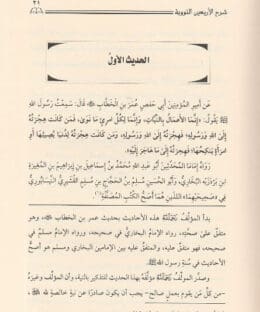 شرح الأربعين النووية
٣١
الحديث الأول
عن أمير المؤمنين أبي حفص عمر بن الخطاب ﷺ قال: سمعت رسول الله
ﷺ يقول: «إنما الأعمال بالنيات، وإنما لكل امرئ ما نوى، فمن كانت هجرته
إلى الله ورسوله فهجرته إلى الله ورسوله، ومن كانت هجرته لدنيا يصيبها أو
امرأة ينكحها فهجرته إلى ما هاجر إليه».
رواه إماما المحدثين أبو عبد الله محمد بن إسماعيل بن إبراهيم بن المغيرة
ابن بردزبه البخاري، وأبو الحسين مسلم بن الحجاج بن مسلم القشيري النيسابوري
في «صحيحيهما» اللذين هما أصح الكتب المصنفة
بدأ المؤلف هذه الأحاديث بحديث عمر بن الخطاب، وهو
متفق على صحته، رواه الإمام البخاري في صحيحه ورواه الإمام مسلم في
صحيحه، فهو متفق عليه، والمتفق عليه بين الإمامين البخاري ومسلم هو أصح
الأحاديث في سنة رسول الله ﷺ.
وصدر المؤلف مؤلفه بهذا الحديث للتذكير بالنية، وأن المؤلف وغيره
-من كل من يقوم بعمل صالح- يجب أن يكون صادرًا عن نية خالصة لله